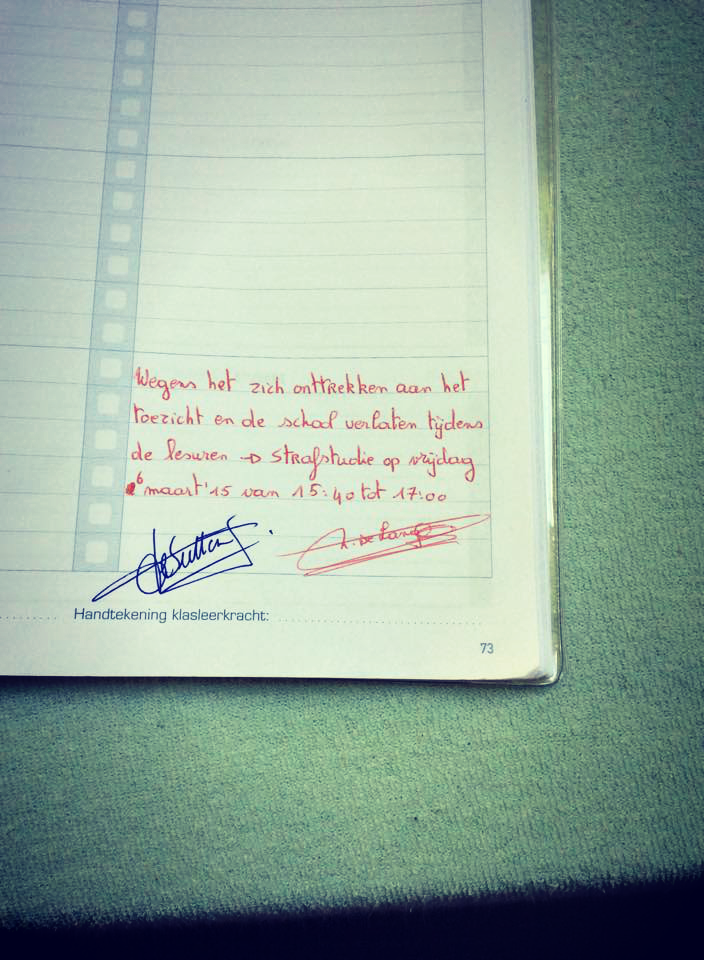 Wegens het zich onttrekken aan het
toezicht en de school verlaten tijdens
de lesuren → strafstudie op vrijdag
6 maart '15 van 15:40 tot 17:00
Handtekening klasleerkracht:
73